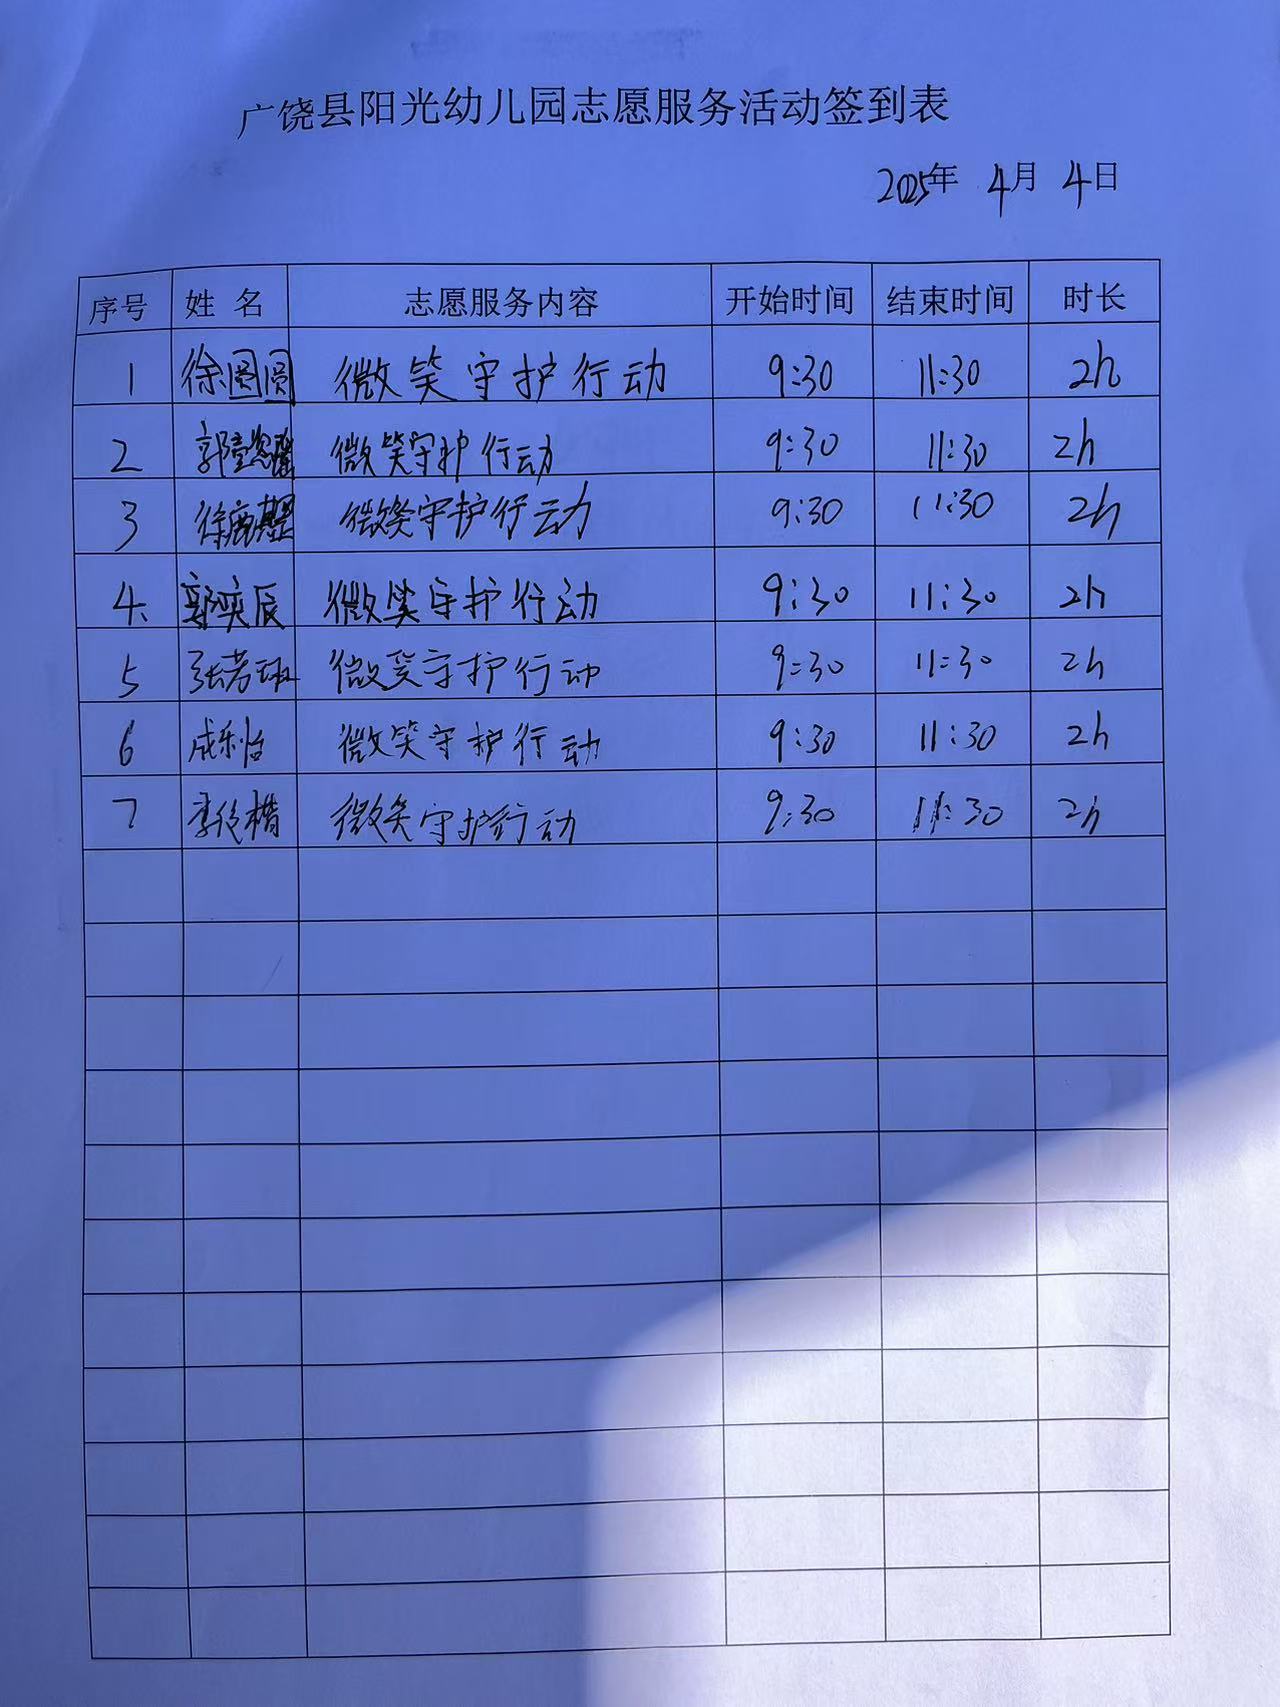 广饶县阳光幼儿园志愿服务活动签到表
2025年 4月 4日
序号 姓名 志愿服务内容 开始时间 结束时间 时长
1 徐圆圆 微笑守护行动 9:30 11:30 2h
2 微笑守护行动 9:30 11:30 2h
3 微笑守护行动 9:30 11:30 2h
4. 郭奕辰 微笑守护行动 9:30 11:30 2h
5 微笑守护行动 9:30 11:30 2h
6 微笑守护行动 9:30 11:30 2h
7 微笑守护行动 9:30 11:30 2h